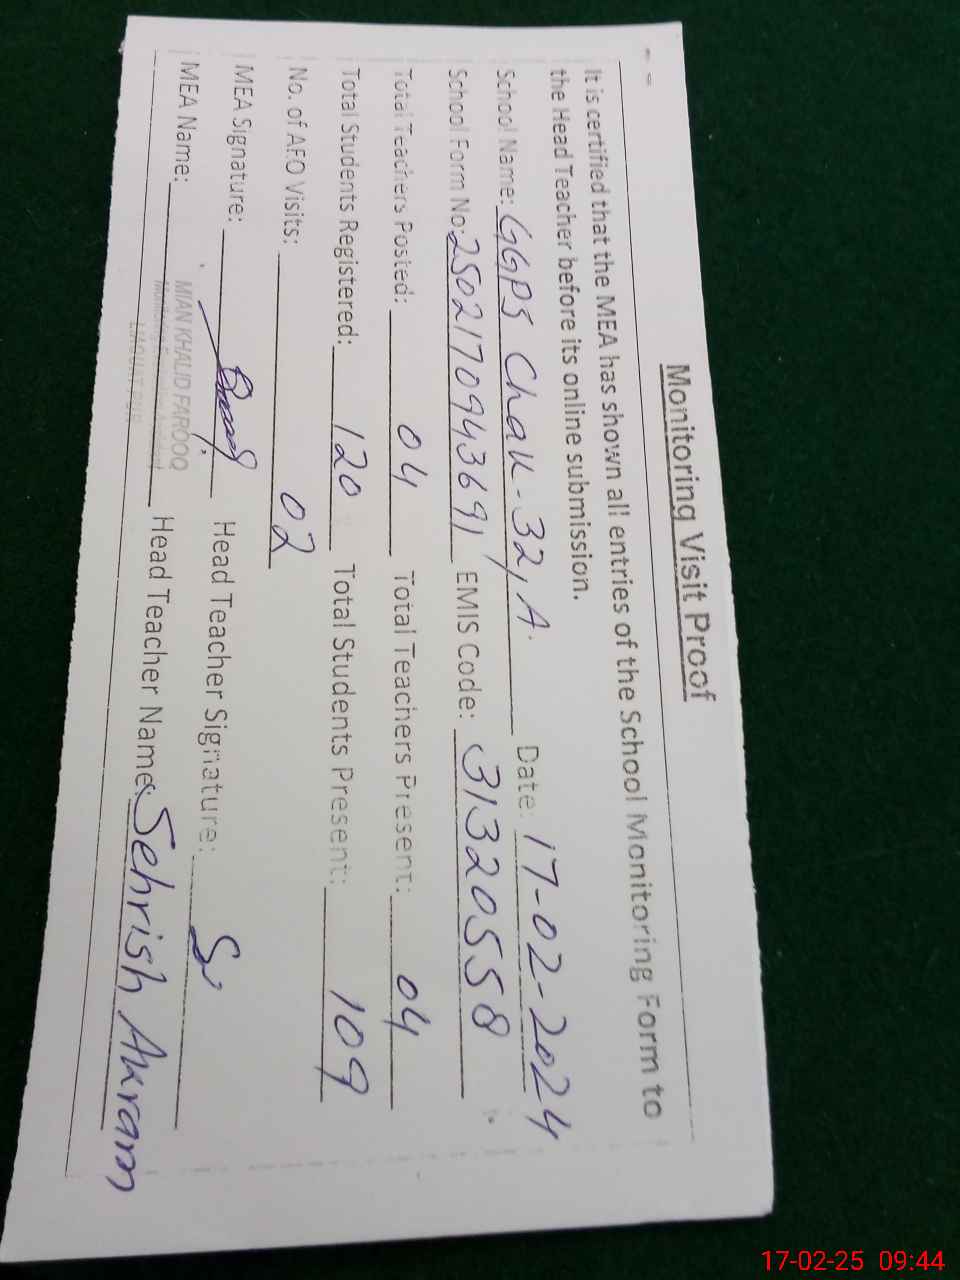 Monitoring Visit Proof
It is certified that the MEA has shown all entries of the School Monitoring Form to
the Head Teacher before its online submission.
School Name: GGPS Chak-32/A. Date: 17-02-2024
School Form No: 2502170943691 EMIS Code: 31320558
Total Teachers Posted: 04 Total Teachers Present: 04
Total Students Registered: 120 Total Students Present: 109
No. of AEO Visits: 02
MEA Signature: Head Teacher Signature:
MEA Name: MIAN KHALID FAROOQ Head Teacher Name: Sehrish Akram
LIAQUAT PUR
17-02-25 09:44